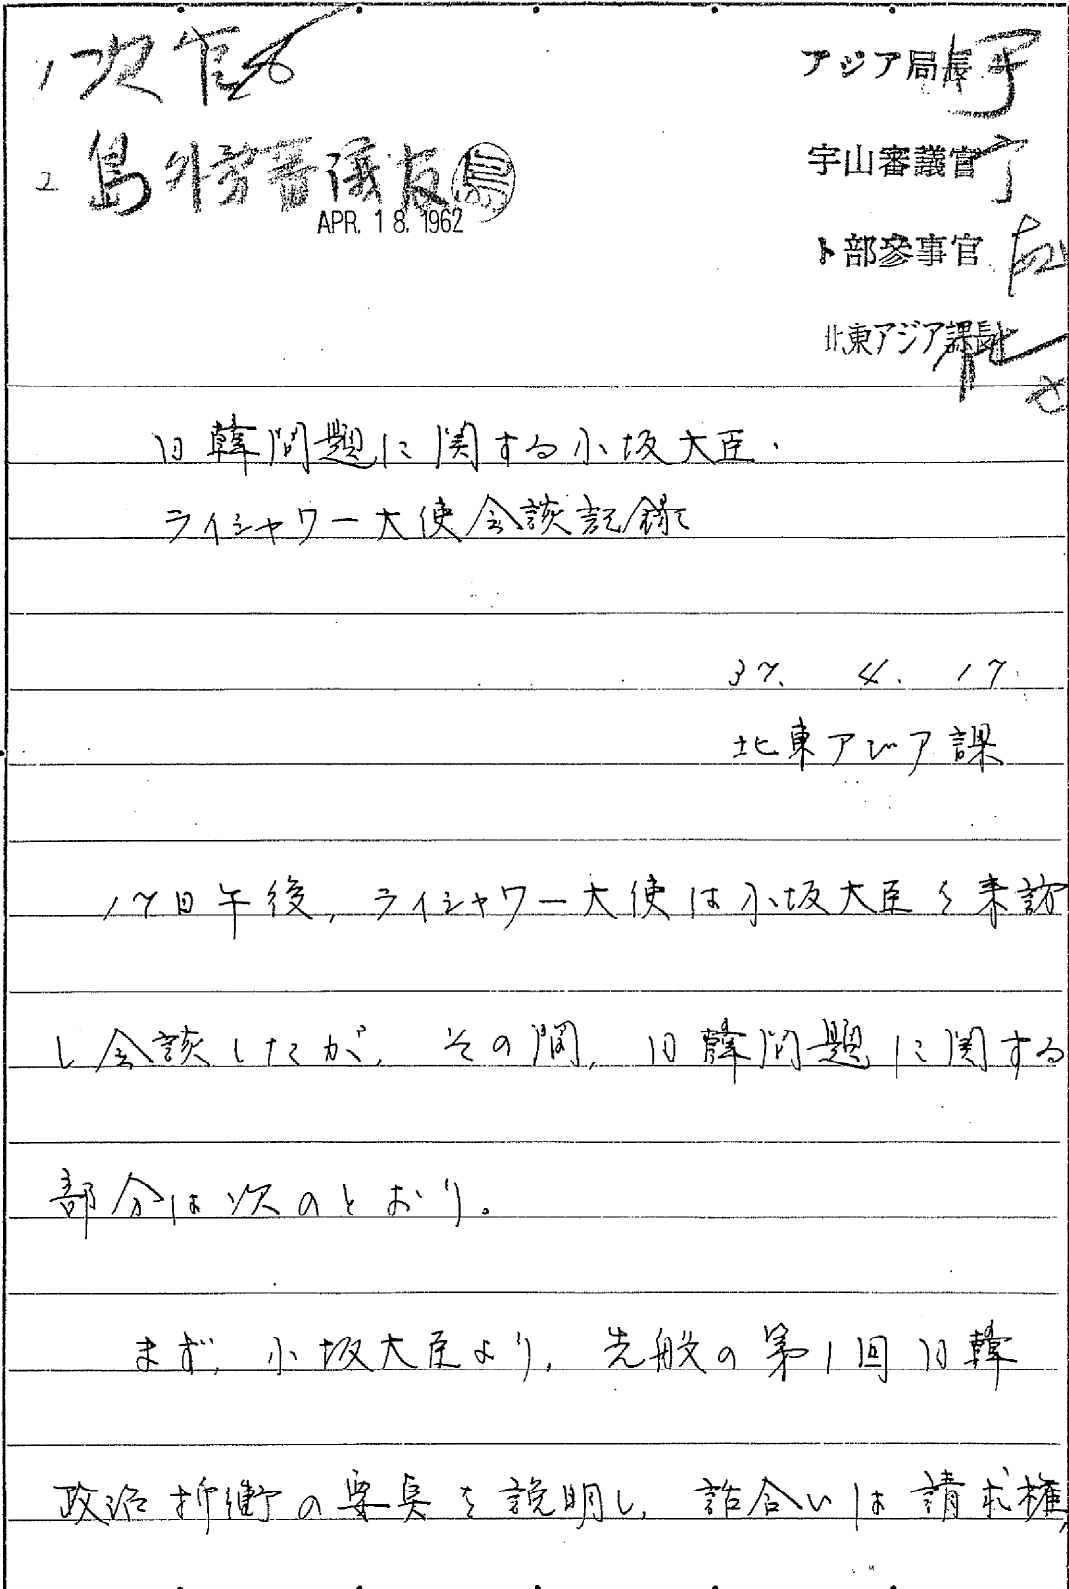 1 次官
アジア局長
2 島外務審議官 島
宇山審議官
APR. 18. 1962
ト部参事官
北東アジア課長
日韓問題に関する小坂大臣・
ライシャワー大使会談記録
37. 4. 17.
北東アジア課
17日午後, ライシャワー大使は小坂大臣を来訪
し会談したが, その間, 日韓問題に関する
部分は次のとおり。
まず, 小坂大臣より, 先般の第1回日韓
政治折衝の要点を説明し, 話合いは請求権,